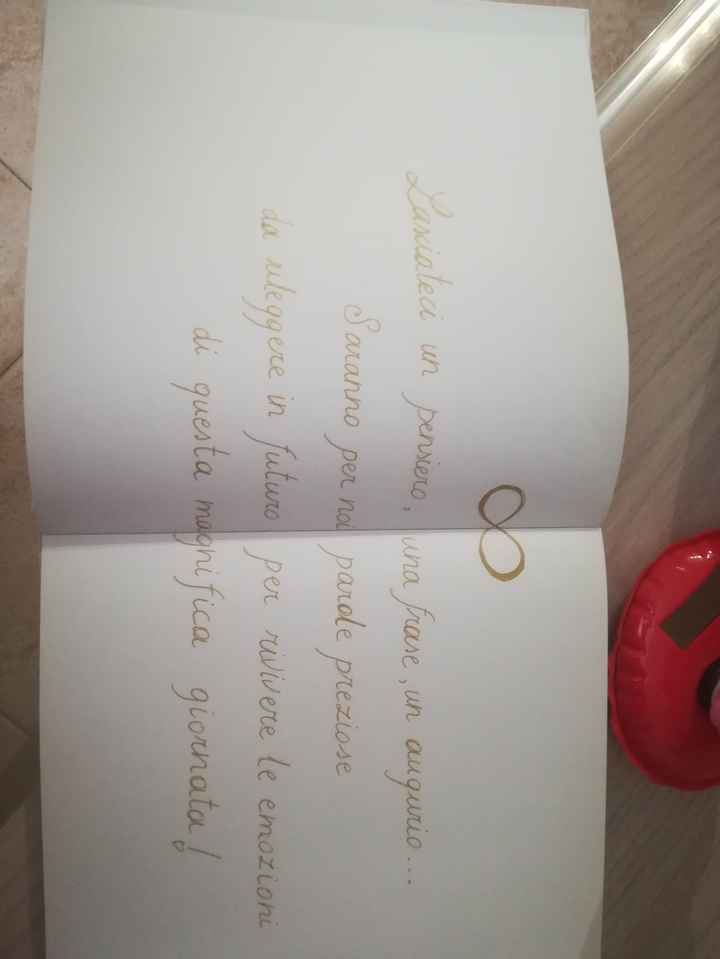 Lasciateci un pensiero, una frase, un augurio...
Saranno per noi parole preziose
da rileggere in futuro per rivivere le emozioni
di questa magnifica giornata!